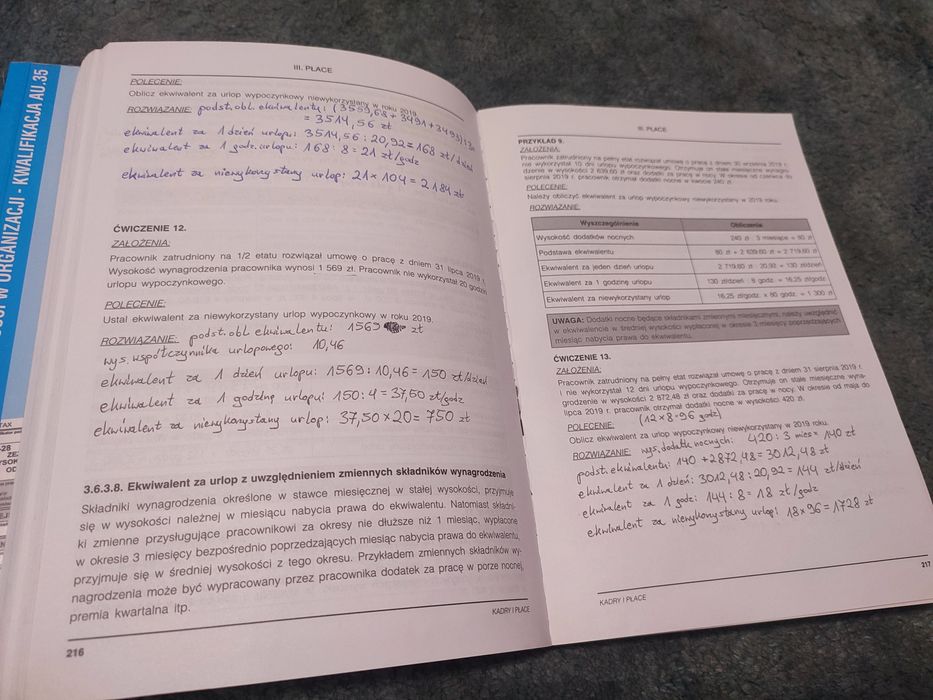 USÓB W ORGANIZACJI - KWALIFIKACJA AU.35
III. PŁACE
POLECENIE:
Oblicz ekwiwalent za urlop wypoczynkowy niewykorzystany w roku 2019.
ROZWIĄZANIE: podst. obl. ekwiwalentu: (3559,68 + 3491 + 3493):3=
= 3514,56 zł
ekwiwalent za 1 dzień urlopu: 3514,56 : 20,92 = 168 zł/dzień
ekwiwalent za 1 godz. urlopu: 168 : 8 = 21 zł/godz
ekwiwalent za niewykorzystany urlop: 21 × 104 = 2184 zł
ĆWICZENIE 12.
ZAŁOŻENIA:
Pracownik zatrudniony na 1/2 etatu rozwiązał umowę o pracę z dniem 31 lipca 2019 r.
Wysokość wynagrodzenia pracownika wynosi 1 569 zł. Pracownik nie wykorzystał 20 godzin
urlopu wypoczynkowego.
POLECENIE:
Ustal ekwiwalent za niewykorzystany urlop wypoczynkowy w roku 2019.
ROZWIĄZANIE: podst. obl. ekwiwalentu: 1569 zł
wys. współczynnika urlopowego: 10,46
ekwiwalent za 1 dzień urlopu: 1569 : 10,46 = 150 zł/dzień
ekwiwalent za 1 godzinę urlopu: 150 : 4 = 37,50 zł/godz
ekwiwalent za niewykorzystany urlop: 37,50 × 20 = 750 zł
3.6.3.8. Ekwiwalent za urlop z uwzględnieniem zmiennych składników wynagrodzenia
Składniki wynagrodzenia określone w stawce miesięcznej w stałej wysokości, przyjmuje
się w wysokości należnej w miesiącu nabycia prawa do ekwiwalentu. Natomiast składni-
ki zmienne przysługujące pracownikowi za okresy nie dłuższe niż 1 miesiąc, wypłacone
w okresie 3 miesięcy bezpośrednio poprzedzających miesiąc nabycia prawa do ekwiwalentu,
przyjmuje się w średniej wysokości z tego okresu. Przykładem zmiennych składników wy-
nagrodzenia może być wypracowany przez pracownika dodatek za pracę w porze nocnej,
premia kwartalna itp.
KADRY I PŁACE
216
III. PŁACE
PRZYKŁAD 9.
ZAŁOŻENIA:
Pracownik zatrudniony na pełny etat rozwiązał umowę o pracę z dniem 30 września 2019 r.
i nie wykorzystał 10 dni urlopu wypoczynkowego. Otrzymuje on stałe miesięczne wynagro-
dzenie w wysokości 2 639,60 zł oraz dodatki za pracę w nocy. W okresie od czerwca do
sierpnia 2019 r. pracownik otrzymał dodatki nocne w kwocie 240 zł.
POLECENIE:
Należy obliczyć ekwiwalent za urlop wypoczynkowy niewykorzystany w 2019 roku.
ROZWIĄZANIE:
Wyszczególnienie Obliczenia
Wysokość dodatków nocnych 240 zł : 3 miesiące = 80 zł
Podstawa ekwiwalentu 80 zł + 2 639,60 zł = 2 719,60 zł
Ekwiwalent za jeden dzień urlopu 2 719,60 zł : 20,92 = 130 zł/dzień
Ekwiwalent za 1 godzinę urlopu 130 zł/dzień : 8 godz. = 16,25 zł/godz.
Ekwiwalent za niewykorzystany urlop 16,25 zł/godz. x 80 godz. = 1 300 zł
UWAGA: Dodatki nocne będące składnikami zmiennymi miesięcznymi, należy uwzględnić
w ekwiwalencie w średniej wysokości wypłaconej w okresie 3 miesięcy poprzedzających
miesiąc nabycia prawa do ekwiwalentu.
ĆWICZENIE 13.
ZAŁOŻENIA:
Pracownik zatrudniony na pełny etat rozwiązał umowę o pracę z dniem 31 sierpnia 2019 r.
i nie wykorzystał 12 dni urlopu wypoczynkowego. Otrzymuje on stałe miesięczne wyna-
grodzenie w wysokości 2 872,48 zł oraz dodatki za pracę w nocy. W okresie od maja do
lipca 2019 r. pracownik otrzymał dodatki nocne w wysokości 420 zł.
(12 × 8 = 96 godz)
POLECENIE:
Oblicz ekwiwalent za urlop wypoczynkowy niewykorzystany w 2019 roku.
ROZWIĄZANIE: wys. dodatk. nocnych: 420 : 3 mies = 140 zł
podst. ekwiwalentu: 140 + 2872,48 = 3012,48 zł
ekwiwalent za 1 dzień: 3012,48 : 20,92 = 144 zł/dzień
ekwiwalent za 1 godz: 144 : 8 = 18 zł/godz
ekwiwalent za niewykorzystany urlop: 18 × 96 = 1728 zł
KADRY I PŁACE
217